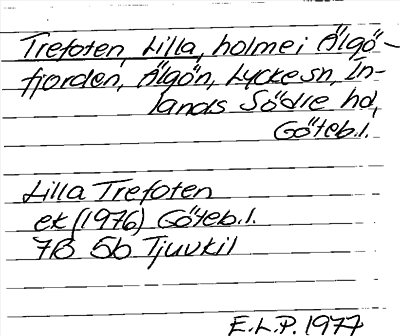 Trefoten, Lilla, holme i Älgö-
fjorden, Älgön, Lycke sn, In-
lands Södre hd,
Göteb.l.
Lilla Trefoten
ek (1976) Göteb.l.
7B 5b Tjuvkil
E.L.P. 1977